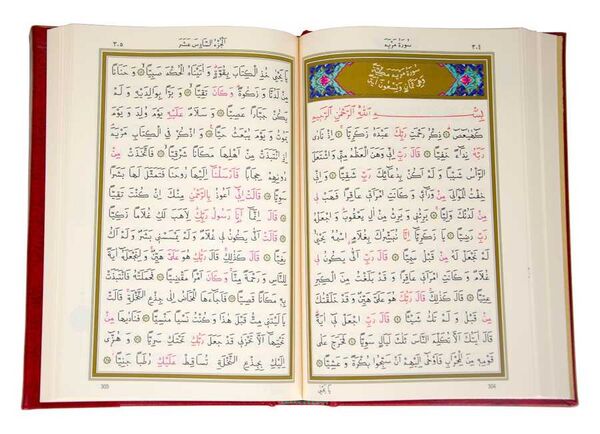 ٣٠٤ سُورَةُ مَرْيَمَ
سُورَةُ مَرْيَمَ مَكِّيَّةٌ
وَهِيَ ثَمَانٍ وَتِسْعُونَ اٰيَةً
بِسْمِ اللّٰهِ الرَّحْمٰنِ الرَّحِيمِ
كٓهٰيٰعٓصٓ ۝ ذِكْرُ رَحْمَتِ رَبِّكَ عَبْدَهُ زَكَرِيَّا ۝ اِذْ نَادٰى
رَبَّهُ نِدَٓاءً خَفِيًّا ۝ قَالَ رَبِّ اِنِّى وَهَنَ الْعَظْمُ مِنِّى وَاشْتَعَلَ
الرَّاْسُ شَيْبًا وَلَمْ اَكُنْ بِدُعَٓائِكَ رَبِّ شَقِيًّا ۝ وَاِنِّى
خِفْتُ الْمَوَالِىَ مِنْ وَرَٓائِى وَكَانَتِ امْرَاَتِى عَاقِرًا فَهَبْ لِى
مِنْ لَدُنْكَ وَلِيًّا ۝ يَرِثُنِى وَيَرِثُ مِنْ اٰلِ يَعْقُوبَ وَاجْعَلْهُ
رَبِّ رَضِيًّا ۝ يَا زَكَرِيَّٓا اِنَّا نُبَشِّرُكَ بِغُلَامٍ اسْمُهُ يَحْيٰى
لَمْ نَجْعَلْ لَهُ مِنْ قَبْلُ سَمِيًّا ۝ قَالَ رَبِّ اَنّٰى يَكُونُ لِى
غُلَامٌ وَكَانَتِ امْرَاَتِى عَاقِرًا وَقَدْ بَلَغْتُ مِنَ الْكِبَرِ
عِتِيًّا ۝ قَالَ كَذٰلِكَ قَالَ رَبُّكَ هُوَ عَلَىَّ هَيِّنٌ وَقَدْ خَلَقْتُكَ مِنْ
قَبْلُ وَلَمْ تَكُ شَيْـًٔا ۝ قَالَ رَبِّ اجْعَلْ لِٓى اٰيَةً
قَالَ اٰيَتُكَ اَلَّا تُكَلِّمَ النَّاسَ ثَلٰثَ لَيَالٍ سَوِيًّا ۝ فَخَرَجَ عَلٰى
قَوْمِهِ مِنَ الْمِحْرَابِ فَاَوْحٰٓى اِلَيْهِمْ اَنْ سَبِّحُوا بُكْرَةً وَعَشِيًّا ۝
يَا يَحْيٰى
304
٣٠٥ اَلْجُزْءُ السَّادِسَ عَشَرَ
يَا يَحْيٰى خُذِ الْكِتَابَ بِقُوَّةٍ وَاٰتَيْنَاهُ الْحُكْمَ صَبِيًّا ۝ وَحَنَانًا
مِنْ لَدُنَّا وَزَكٰوةً وَكَانَ تَقِيًّا ۝ وَبَرًّا بِوَالِدَيْهِ وَلَمْ
يَكُنْ جَبَّارًا عَصِيًّا ۝ وَسَلَامٌ عَلَيْهِ يَوْمَ وُلِدَ وَيَوْمَ
يَمُوتُ وَيَوْمَ يُبْعَثُ حَيًّا ۝ وَاذْكُرْ فِى الْكِتَابِ مَرْيَمَ
اِذِ انْتَبَذَتْ مِنْ اَهْلِهَا مَكَانًا شَرْقِيًّا ۝ فَاتَّخَذَتْ مِنْ
دُونِهِمْ حِجَابًا فَاَرْسَلْنَٓا اِلَيْهَا رُوحَنَا فَتَمَثَّلَ لَهَا بَشَرًا
سَوِيًّا ۝ قَالَتْ اِنِّٓى اَعُوذُ بِالرَّحْمٰنِ مِنْكَ اِنْ كُنْتَ تَقِيًّا
۝ قَالَ اِنَّمَٓا اَنَا رَسُولُ رَبِّكِ لِاَهَبَ لَكِ غُلَامًا زَكِيًّا
۝ قَالَتْ اَنّٰى يَكُونُ لِى غُلَامٌ وَلَمْ يَمْسَسْنِى بَشَرٌ وَلَمْ اَكُ
بَغِيًّا ۝ قَالَ كَذٰلِكِ قَالَ رَبُّكِ هُوَ عَلَىَّ هَيِّنٌ وَلِنَجْعَلَهُٓ اٰيَةً
لِلنَّاسِ وَرَحْمَةً مِنَّا وَكَانَ اَمْرًا مَقْضِيًّا ۝ فَحَمَلَتْهُ فَانْتَبَذَتْ
بِهِ مَكَانًا قَصِيًّا ۝ فَاَجَٓاءَهَا الْمَخَاضُ اِلٰى جِذْعِ النَّخْلَةِ قَالَتْ
يَا لَيْتَنِى مِتُّ قَبْلَ هٰذَا وَكُنْتُ نَسْيًا مَنْسِيًّا ۝ فَنَادٰيهَا مِنْ
تَحْتِهَٓا اَلَّا تَحْزَنِى قَدْ جَعَلَ رَبُّكِ تَحْتَكِ سَرِيًّا ۝ وَهُزِّٓى
اِلَيْكِ بِجِذْعِ النَّخْلَةِ تُسَاقِطْ عَلَيْكِ رُطَبًا جَنِيًّا ۝
305